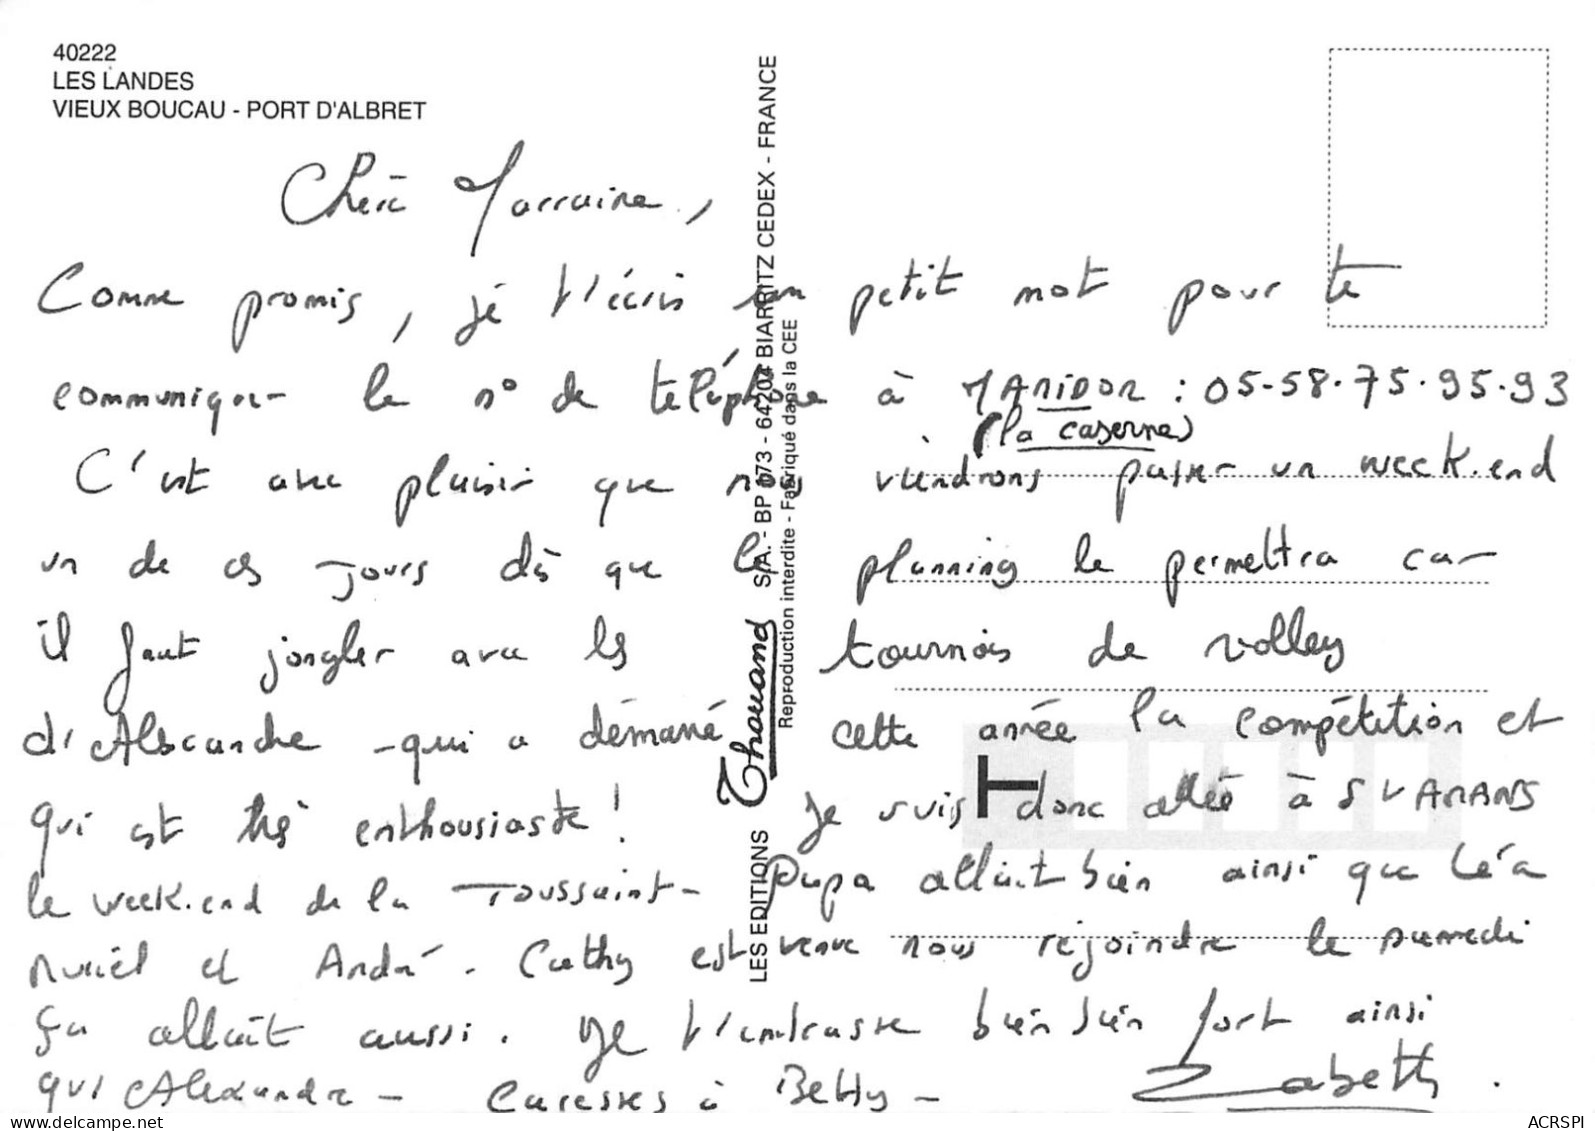 40222
LES LANDES
VIEUX BOUCAU - PORT D'ALBRET
Chère Marraine,
Comme promis, je t'écris un petit mot pour te
communiquer le n° de téléphone à MARIDOR : 05-58.75.95.93
(la caserne)
C'est avec plaisir que nous viendrons passer un week.end
un de ces jours dès que le planning le permettra car
il faut jongler avec les tournois de volley
d'Alexandre - qui a démarré cette année la compétition et
qui est très enthousiaste ! Je suis donc allée à
le week.end de la Toussaint - Papa allait bien ainsi que Léa
Muriel et André. Cathy est venue nous rejoindre le samedi
ça allait aussi. Je t'embrasse bien bien fort ainsi
qu' Alexandre - Caresses à Betty - Zabeth.
LES EDITIONS Thouand S.A. - BP 673 - 64204 BIARRITZ CEDEX - FRANCE
Reproduction interdite - Fabriqué dans la CEE
T
ACRSPI